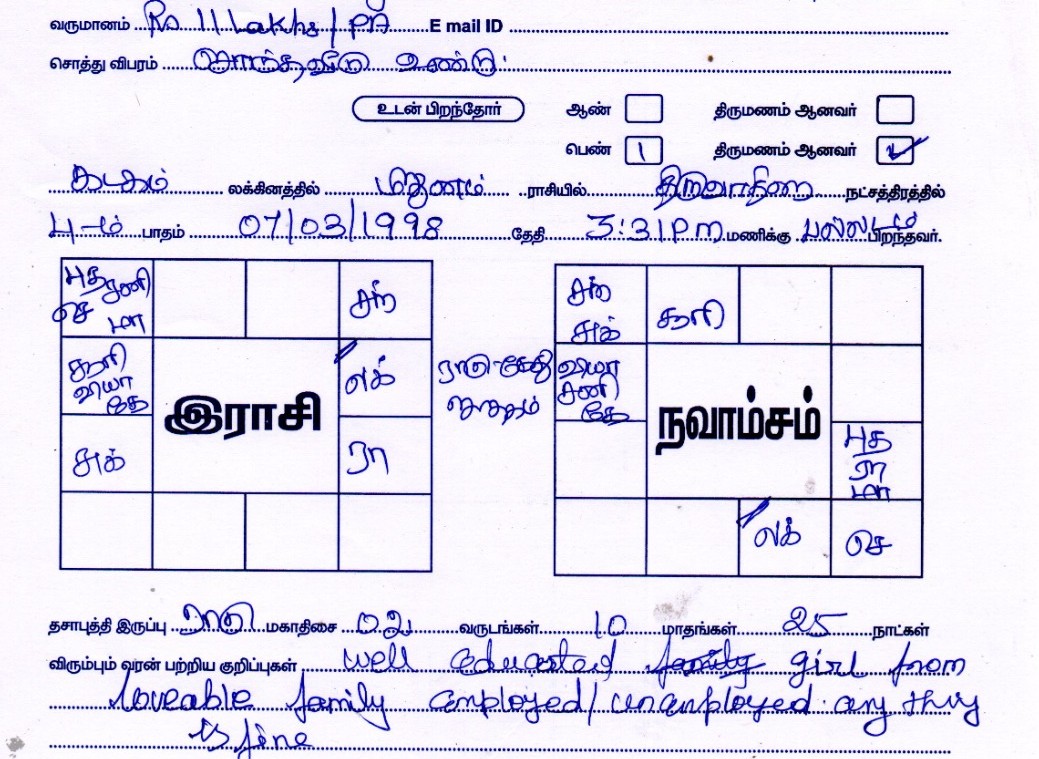 வருமானம் Rs 11 Lakhs / PA E mail ID
சொத்து விபரம் சொந்தவீடு உண்டு.
உடன் பிறந்தோர் ஆண் திருமணம் ஆனவர்
பெண் 1 திருமணம் ஆனவர் ✓
கடகம் லக்கினத்தில் மிதுனம் ராசியில் திருவாதிரை நட்சத்திரத்தில்
4-ம் பாதம் 07/03/1998 தேதி 3:31 PM மணிக்கு பல்லடம் பிறந்தவர்.
புத சனி
செ மா
சந்
சூரி
வியா
கே
லக்
சுக்
ரா
இராசி
ராகு கேது
சந்
சுக்
சூரி
வியா
சனி
கே
புத
ரா
மா
லக்
செ
நவாம்சம்
தசாபுத்தி இருப்பு ராகு மகாதிசை 02 வருடங்கள் 10 மாதங்கள் 25 நாட்கள்
விரும்பும் வரன் பற்றிய குறிப்புகள் well educated family girl from
loveable family employed/unemployed. any thing
is fine